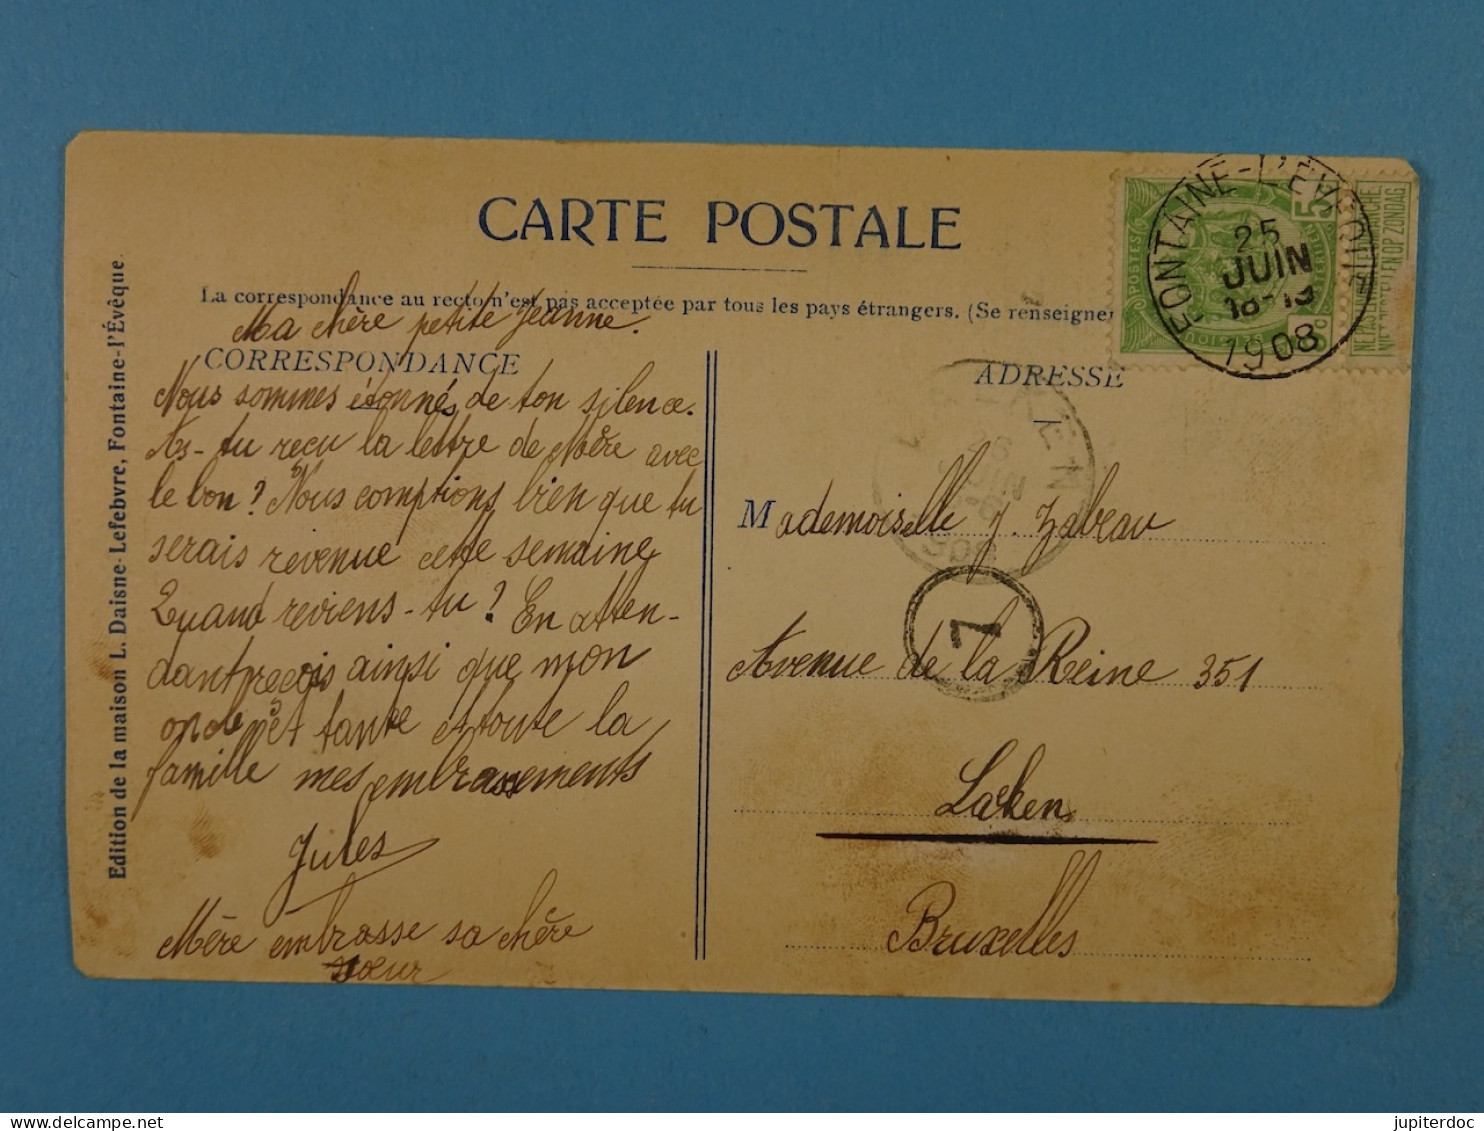 CARTE POSTALE
La correspondance au recto n'est pas acceptée par tous les pays étrangers. (Se renseigner
Edition de la maison L. Daisne-Lefebvre, Fontaine-l'Évêque.
CORRESPONDANCE
Ma chère petite Jeanne.
Nous sommes étonnés de ton silence.
As-tu reçu la lettre de Mère avec
le bon? Nous comptions bien que tu
serais revenue cette semaine
Quand reviens-tu? En atten-
dant reçois ainsi que mon
oncle et tante et toute la
famille mes embrassements
Jules
Mère embrasse sa chère
soeur
ADRESSE
Mademoiselle J. Zabeau
Avenue de la Reine 351
Laeken
Bruxelles
FONTAINE-L'EVEQUE
25
JUIN
18-19
1908
POSTES
5
NE PAS LIVRER LE DIMANCHE
NIET BESTELLEN OP ZONDAG
LAEKEN
JUIN
1908
7
jupiterdoc